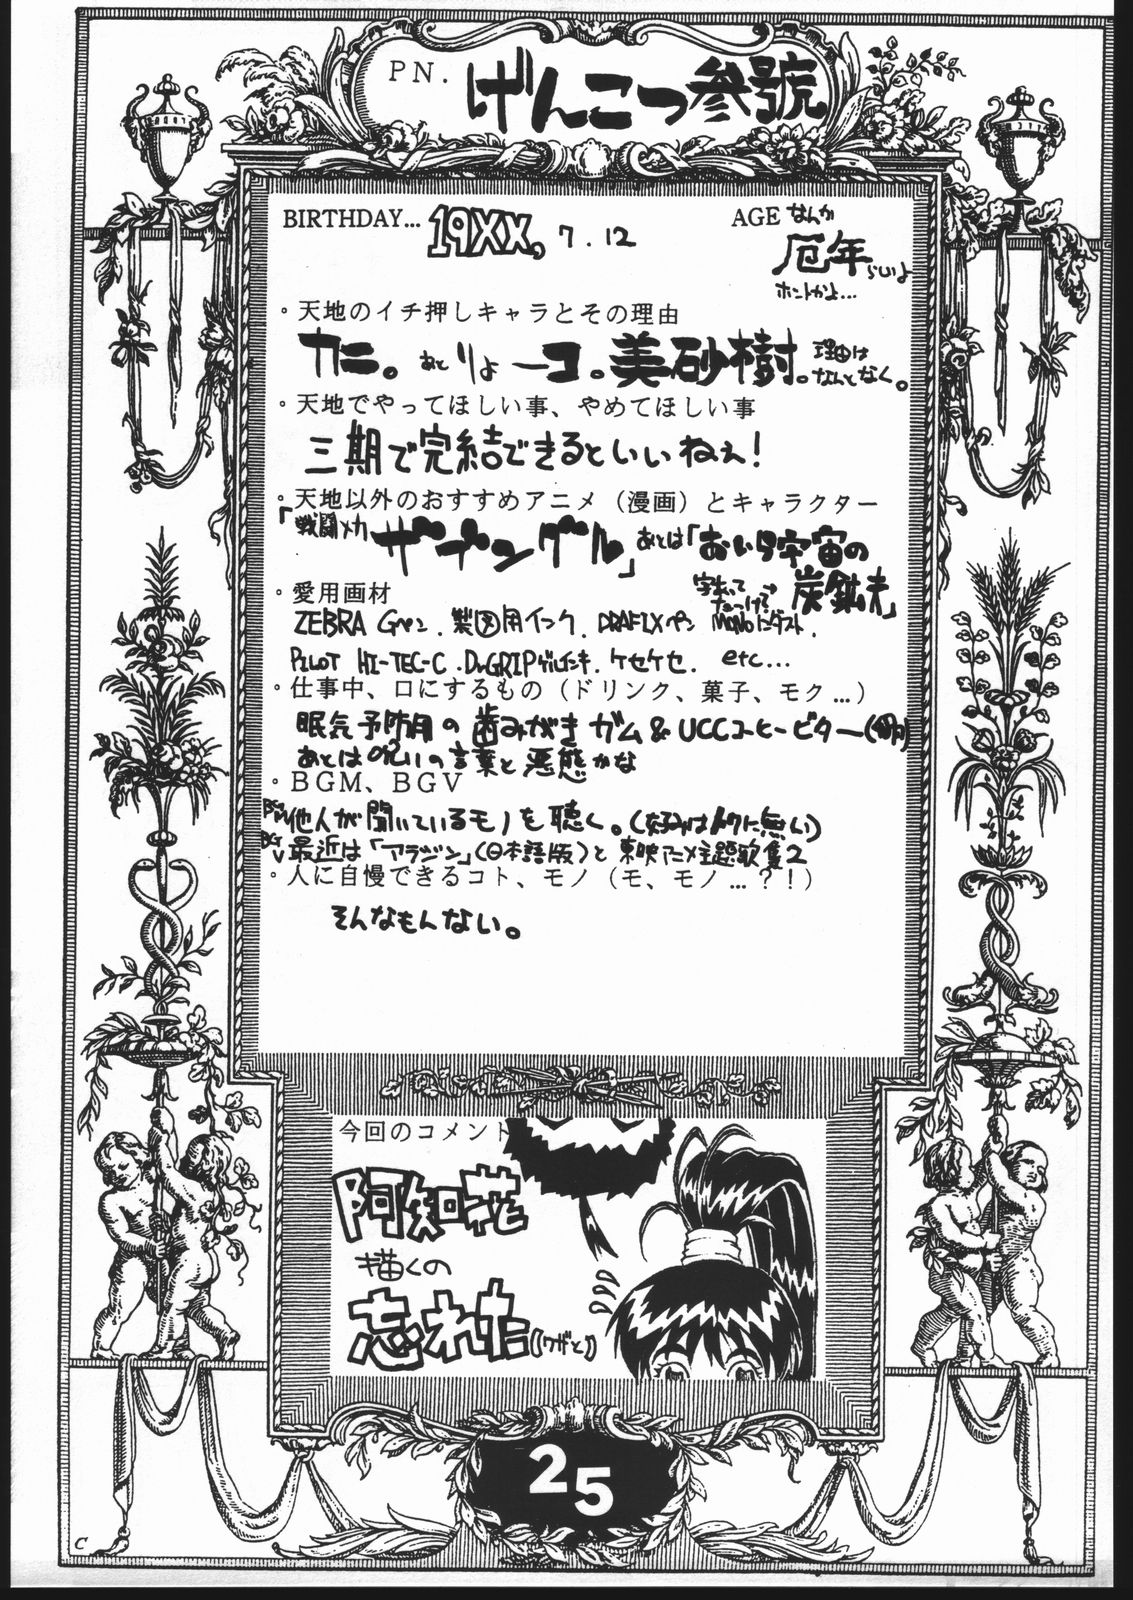 PN. げんこつ参號
BIRTHDAY... 19XX, 7.12
AGE なんか
厄年らしいよ
ホントかよ...
・天地のイチ押しキャラとその理由
カニ。あと りょーコ。美砂樹。理由はなんとなく。
・天地でやってほしい事、やめてほしい事
三期で完結できるといいねぇ!
・天地以外のおすすめアニメ(漫画)とキャラクター
「戦闘メカ ザブングル」あとは「おいら宇宙の
炭鉱夫」
・愛用画材
ZEBRA Gペン. 製図用インク. DRAFIXペン MONO
PILOT HI-TEC-C. Dr.GRIPゲルインキ. ケセケセ. etc...
・仕事中、口にするもの(ドリンク、菓子、モク...)
眠気予防用の歯みがきガム & UCCコーヒービター
あとは呪いの言葉と悪態かな
・BGM、BGV
BGM 他人が聞いているモノを聴く。(好みはトクに無い)
BGV 最近は「アラジン」(日本語版)と東映アニメ主題歌集2
・人に自慢できるコト、モノ(モ、モノ...?!)
そんなもんない。
今回のコメント
阿知花
描くの
忘れた((ワザと))
25
C